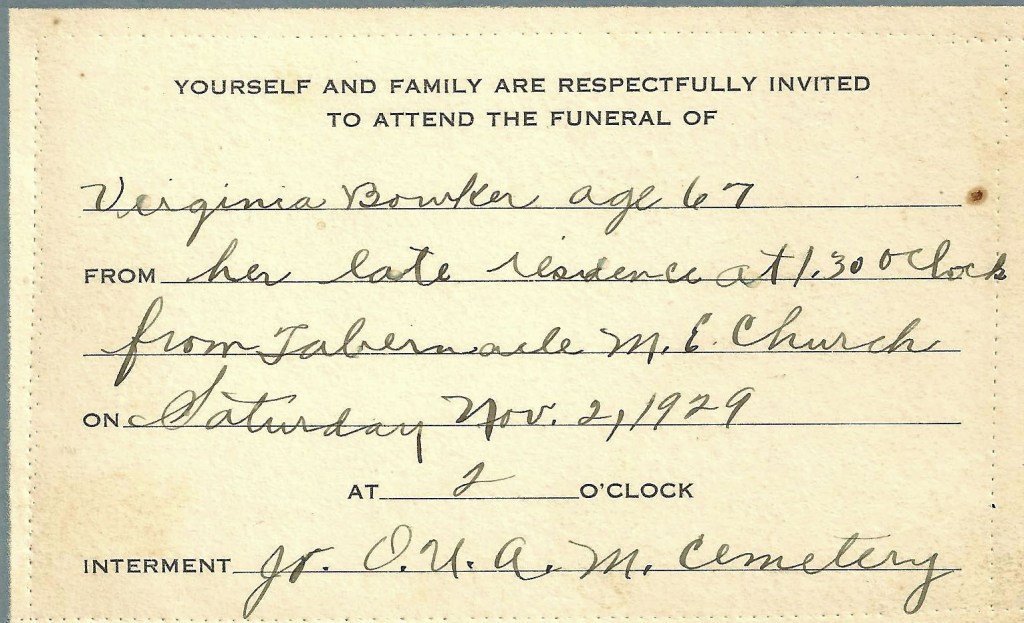 YOURSELF AND FAMILY ARE RESPECTFULLY INVITED
TO ATTEND THE FUNERAL OF
Virginia Bowker age 67
FROM her late residence at 1.30 oclock
from Tabernacle M.E. Church
ON Saturday Nov. 2, 1929
AT 2 O'CLOCK
INTERMENT Jr. O.U.A.M. Cemetery